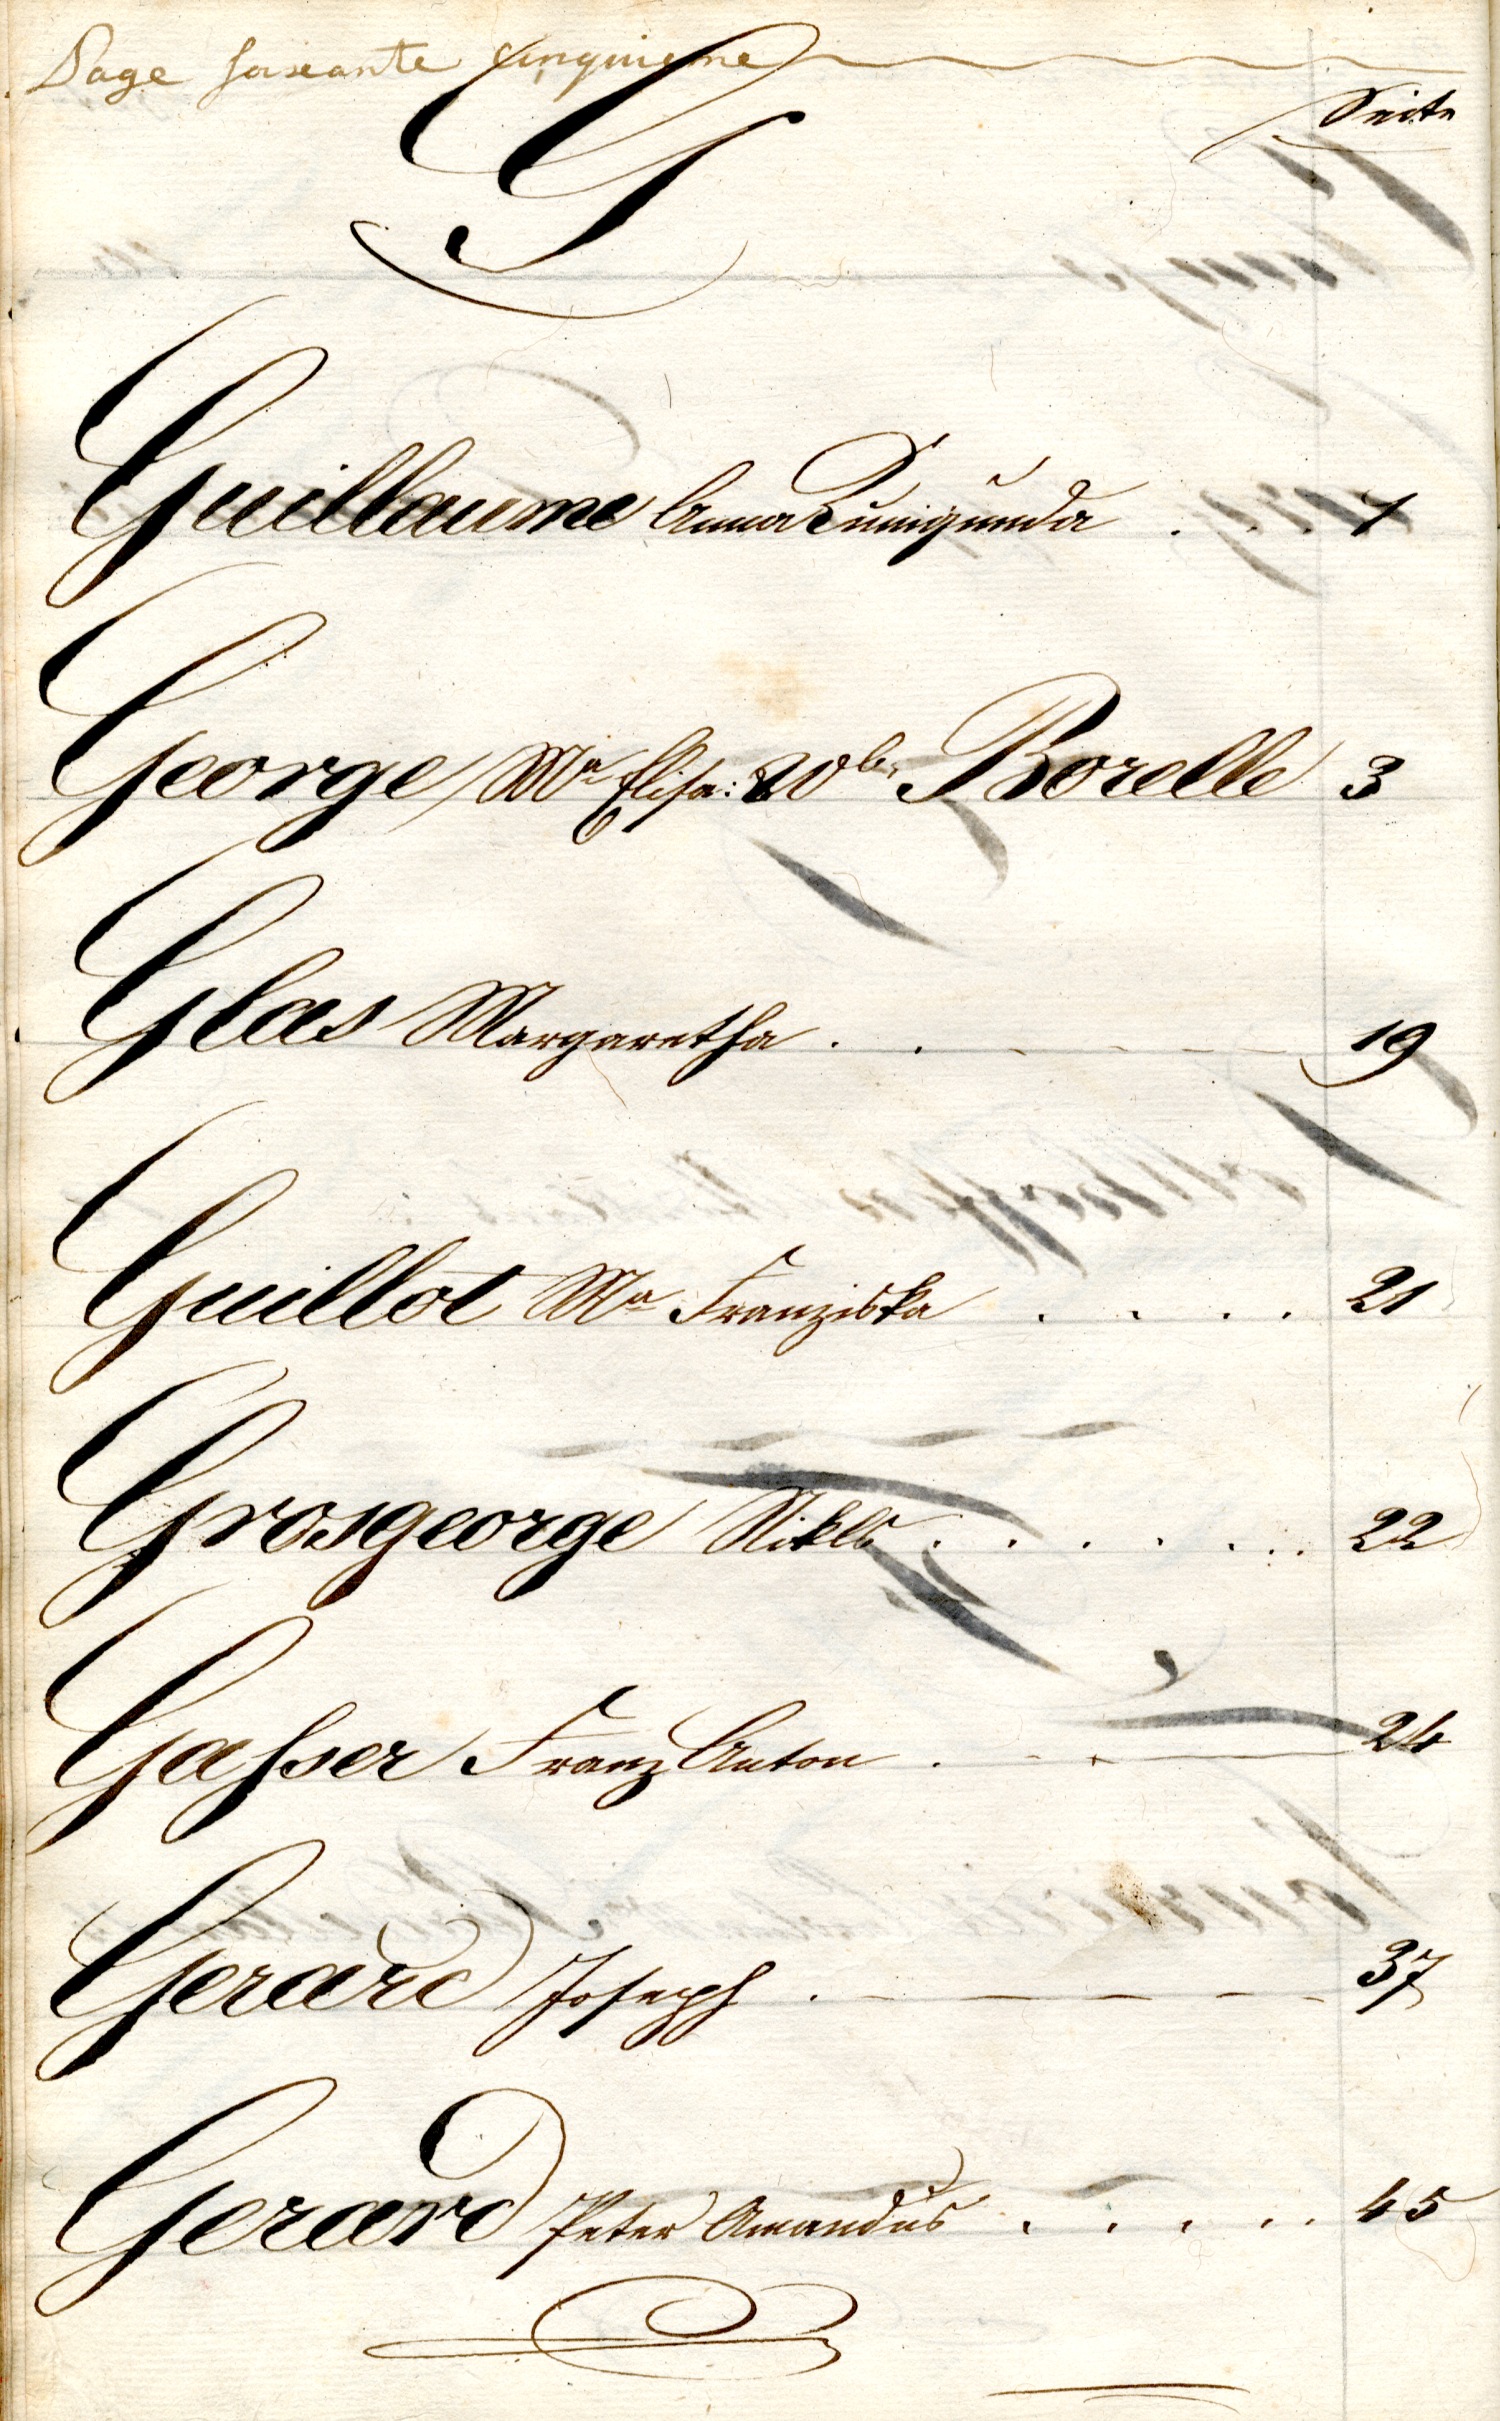 Page soixante cinquieme
Seite
G
Guillaume Anna Cunigunda . . . 1
George Mª Elisa: Wb. Borelle 3
Glas Margaretha . . 19
Guillot Mª Franziska . . . . 21
Grosgeorge Nikls . . . . . . . 22
Gaßser Franz Anton . 24
Gerard Joseph . 37
Gerard Peter Amandus . . . . . 45